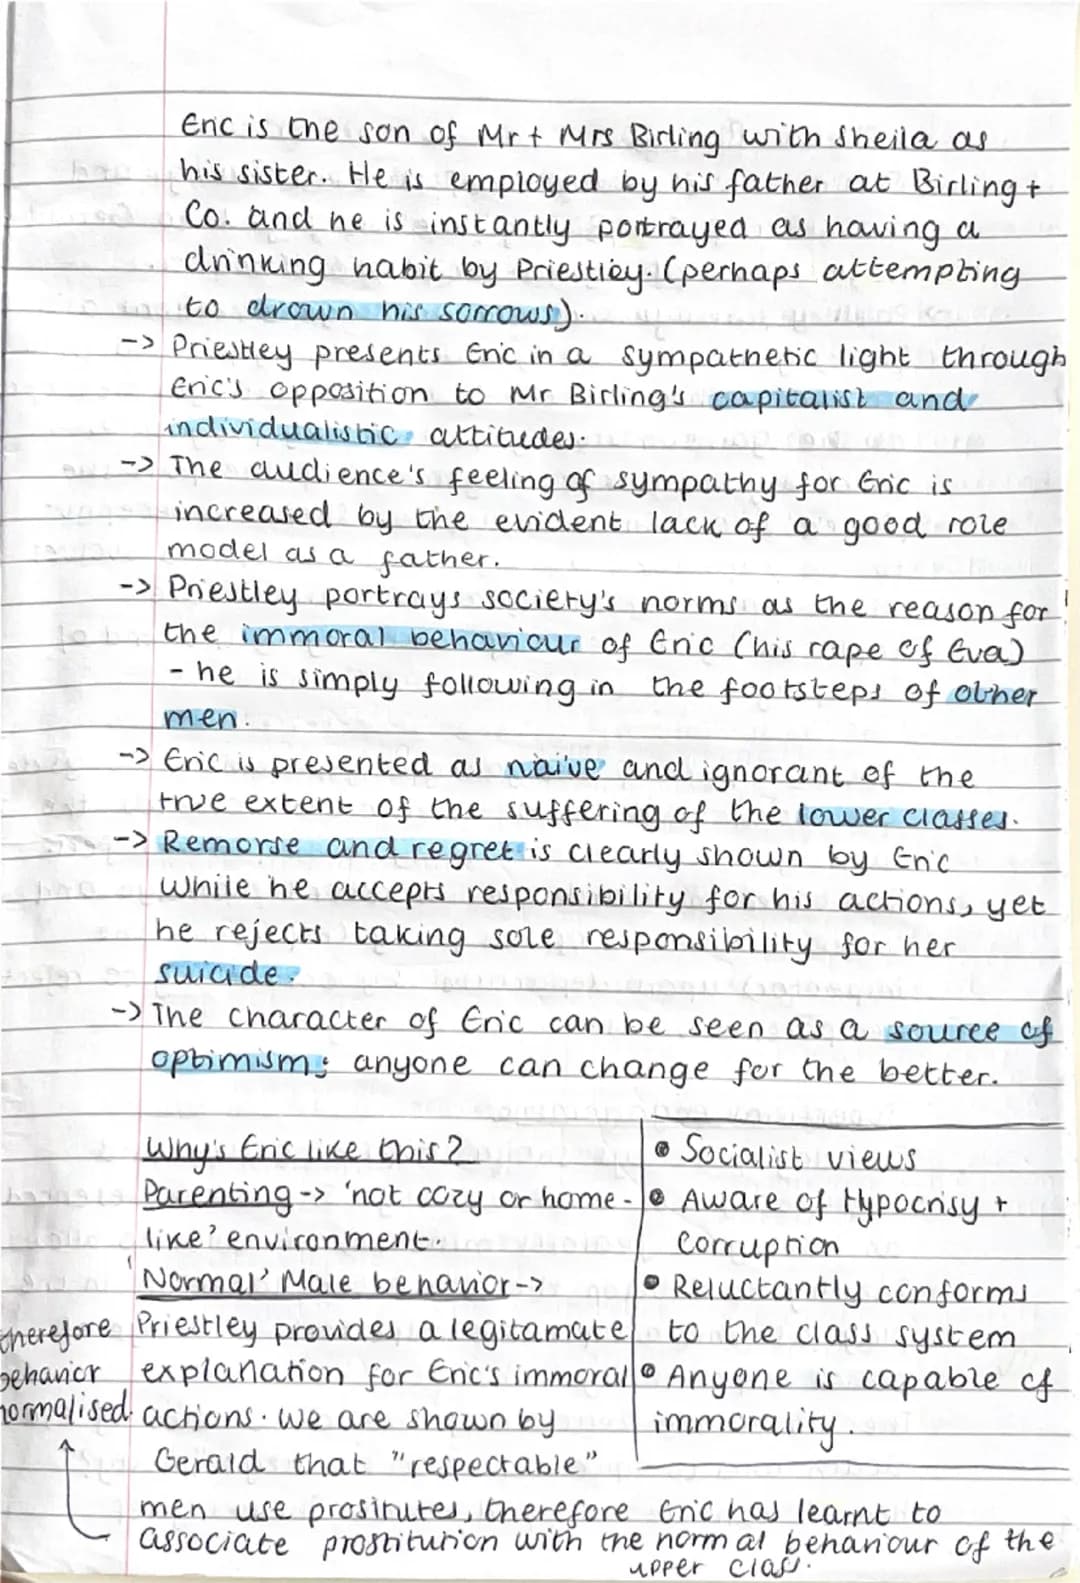 Eric is the son of Mr + Mrs Birling with Sheila as
his sister. He is employed by his father at Birling +
Co. and he is instantly portrayed as having a
drinking habit by Priestley. (perhaps attempting
to drown his sorrows).
-> Priestley presents Eric in a sympathetic light through
Eric's opposition to Mr Birling's capitalist and
individualistic attitudes.
-> The audience's feeling of sympathy for Eric is
increased by the evident lack of a good role
model as a father.
-> Priestley portrays society's norms as the reason for
the immoral behaviour of Eric (his rape of Eva)
- he is simply following in the footsteps of other
men.
-> Eric is presented as naive and ignorant of the
true extent of the suffering of the lower classes.
-> Remorse and regret is clearly shown by Eric
while he accepts responsibility for his actions, yet
he rejects taking sole responsibility for her
suicide.
-> The character of Eric can be seen as a source of
optimism; anyone can change for the better.
Why's Eric like this?
Parenting -> 'not cozy or home-
like' environment.
'Normal' Male behavior ->
Priestley provides a legitamate
explanation for Eric's immoral
actions. We are shown by
Gerald that "respectable"
men use prositutes, therefore Eric has learnt to
associate prostitution with the normal behaviour of the
upper class.
therefore
behavior
normalised.
• Socialist views
• Aware of Hypocrisy +
Corruption
• Reluctantly conforms
to the class system
• Anyone is capable of
immorality.